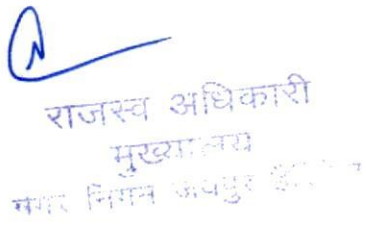 राजस्व अधिकारी
मुख्यालय
नगर निगम जयपुर